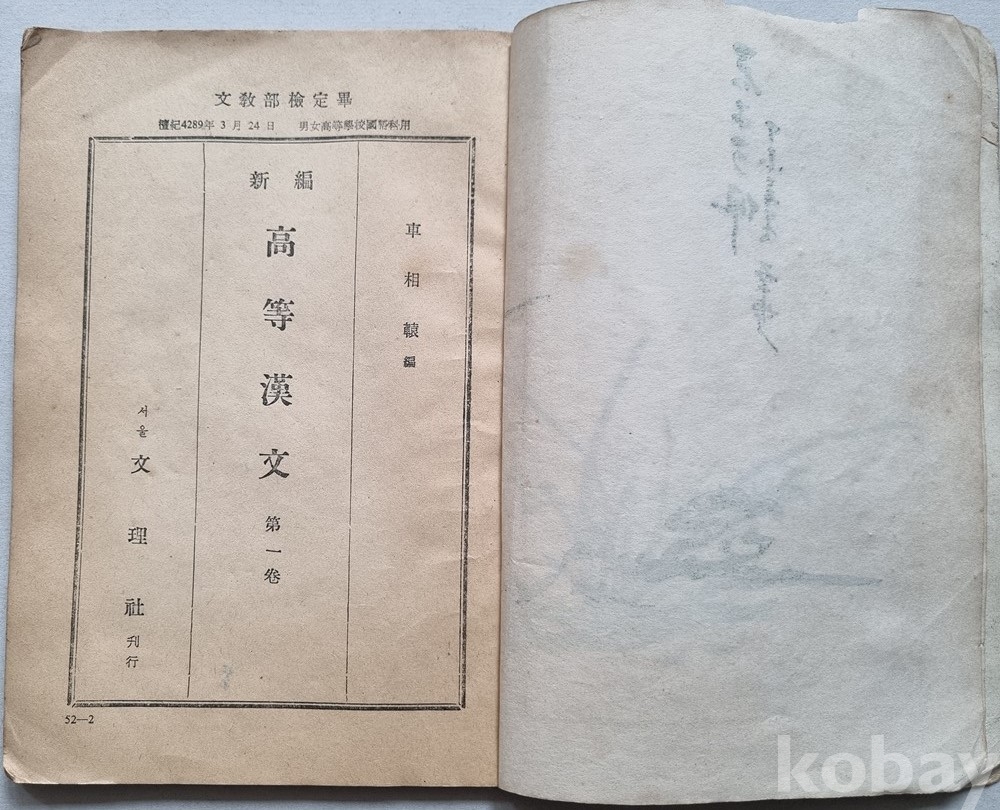 文敎部檢定畢
檀紀4289年 3 月 24 日 男女高等學校國語科用
車相轅編
新編
高等漢文 第一卷
서울 文理社 刊行
52—2
kobay